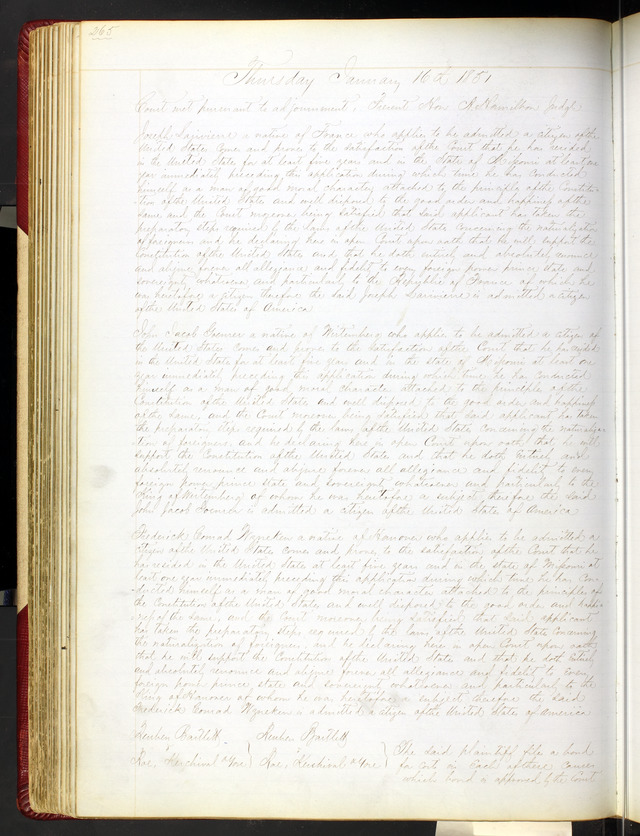 265
Thursday January 16th 1851
Court met pursuant to adjournment. Present Hon. A Hamilton Judge
Joseph Lariviere a native of France who applies to be admitted a citizen of the
United States comes and proves to the satisfaction of the Court that he has resided
in the United States for at least five years and in the State of Missouri at least one
year immediately preceding this application during which time he has conducted
himself as a man of good moral character attached to the principles of the Constitu-
tion of the United States and well disposed to the good order and happiness of the
same and the Court moreover being satisfied that said applicant has taken the
preparatory steps required by the laws of the United States concerning the naturalization
of foreigners and he declaring here in open Court upon oath that he will support the
Constitution of the United States and that he doth entirely and absolutely renounce
and abjure forever all allegiance and fidelity to every foreign power prince state and
sovereignty whatsoever and particularly to the Republic of France of which he
was heretofore a citizen therefore the said Joseph Lariviere is admitted a citizen
of the United States of America
John Jacob a native of Wirtemberg who applies to be admitted a citizen of
the United States comes and proves to the satisfaction of the Court that he has resided
in the United States for at least five years and in the state of Missouri at least one
year immediately preceding this application during which time he has conducted
himself as a man of good moral character attached to the principles of the
Constitution of the United States and well disposed to the good order and happiness
of the same, and the Court moreover being satisfied that said applicant has taken
the preparatory steps required by the laws of the United States concerning the naturaliza-
tion of foreigners, and he declaring here in open Court upon oath that he will
support the Constitution of the United States and that he doth entirely and
absolutely renounce and abjure forever all allegiance and fidelity to every
foreign power prince state and sovereignty whatsoever and particularly to the
King of Wirtemberg of whom he was heretofore a subject therefore the said
John Jacob is admitted a citizen of the United States of America
Frederick Conrad Wyneken a native of Hanover who applies to be admitted a
citizen of the United States comes and proves to the satisfaction of the Court that he
has resided in the United States at least five years and in the state of Missouri at
least one year immediately preceding this application during which time he has con-
ducted himself as a man of good moral character attached to the principles of
the Constitution of the United States and well disposed to the good order and happi-
ness of the same, and the Court moreover being satisfied that said applicant
has taken the preparatory steps required by the laws of the United States concerning
the naturalization of foreigners, and he declaring here in open Court upon oath
that he will support the Constitution of the United States and that he doth entirely
and absolutely renounce and abjure forever all allegiance and fidelity to every
foreign power prince state and sovereignty whatsoever and particularly to the
King of Hanover of whom he was heretofore a subject therefore the said
Frederick Conrad Wyneken is admitted a citizen of the United States of America
Reuben Bartlett Reuben Bartlett
The said plaintiff files a bond
for cost in each of these causes
which bond is approved by the Court